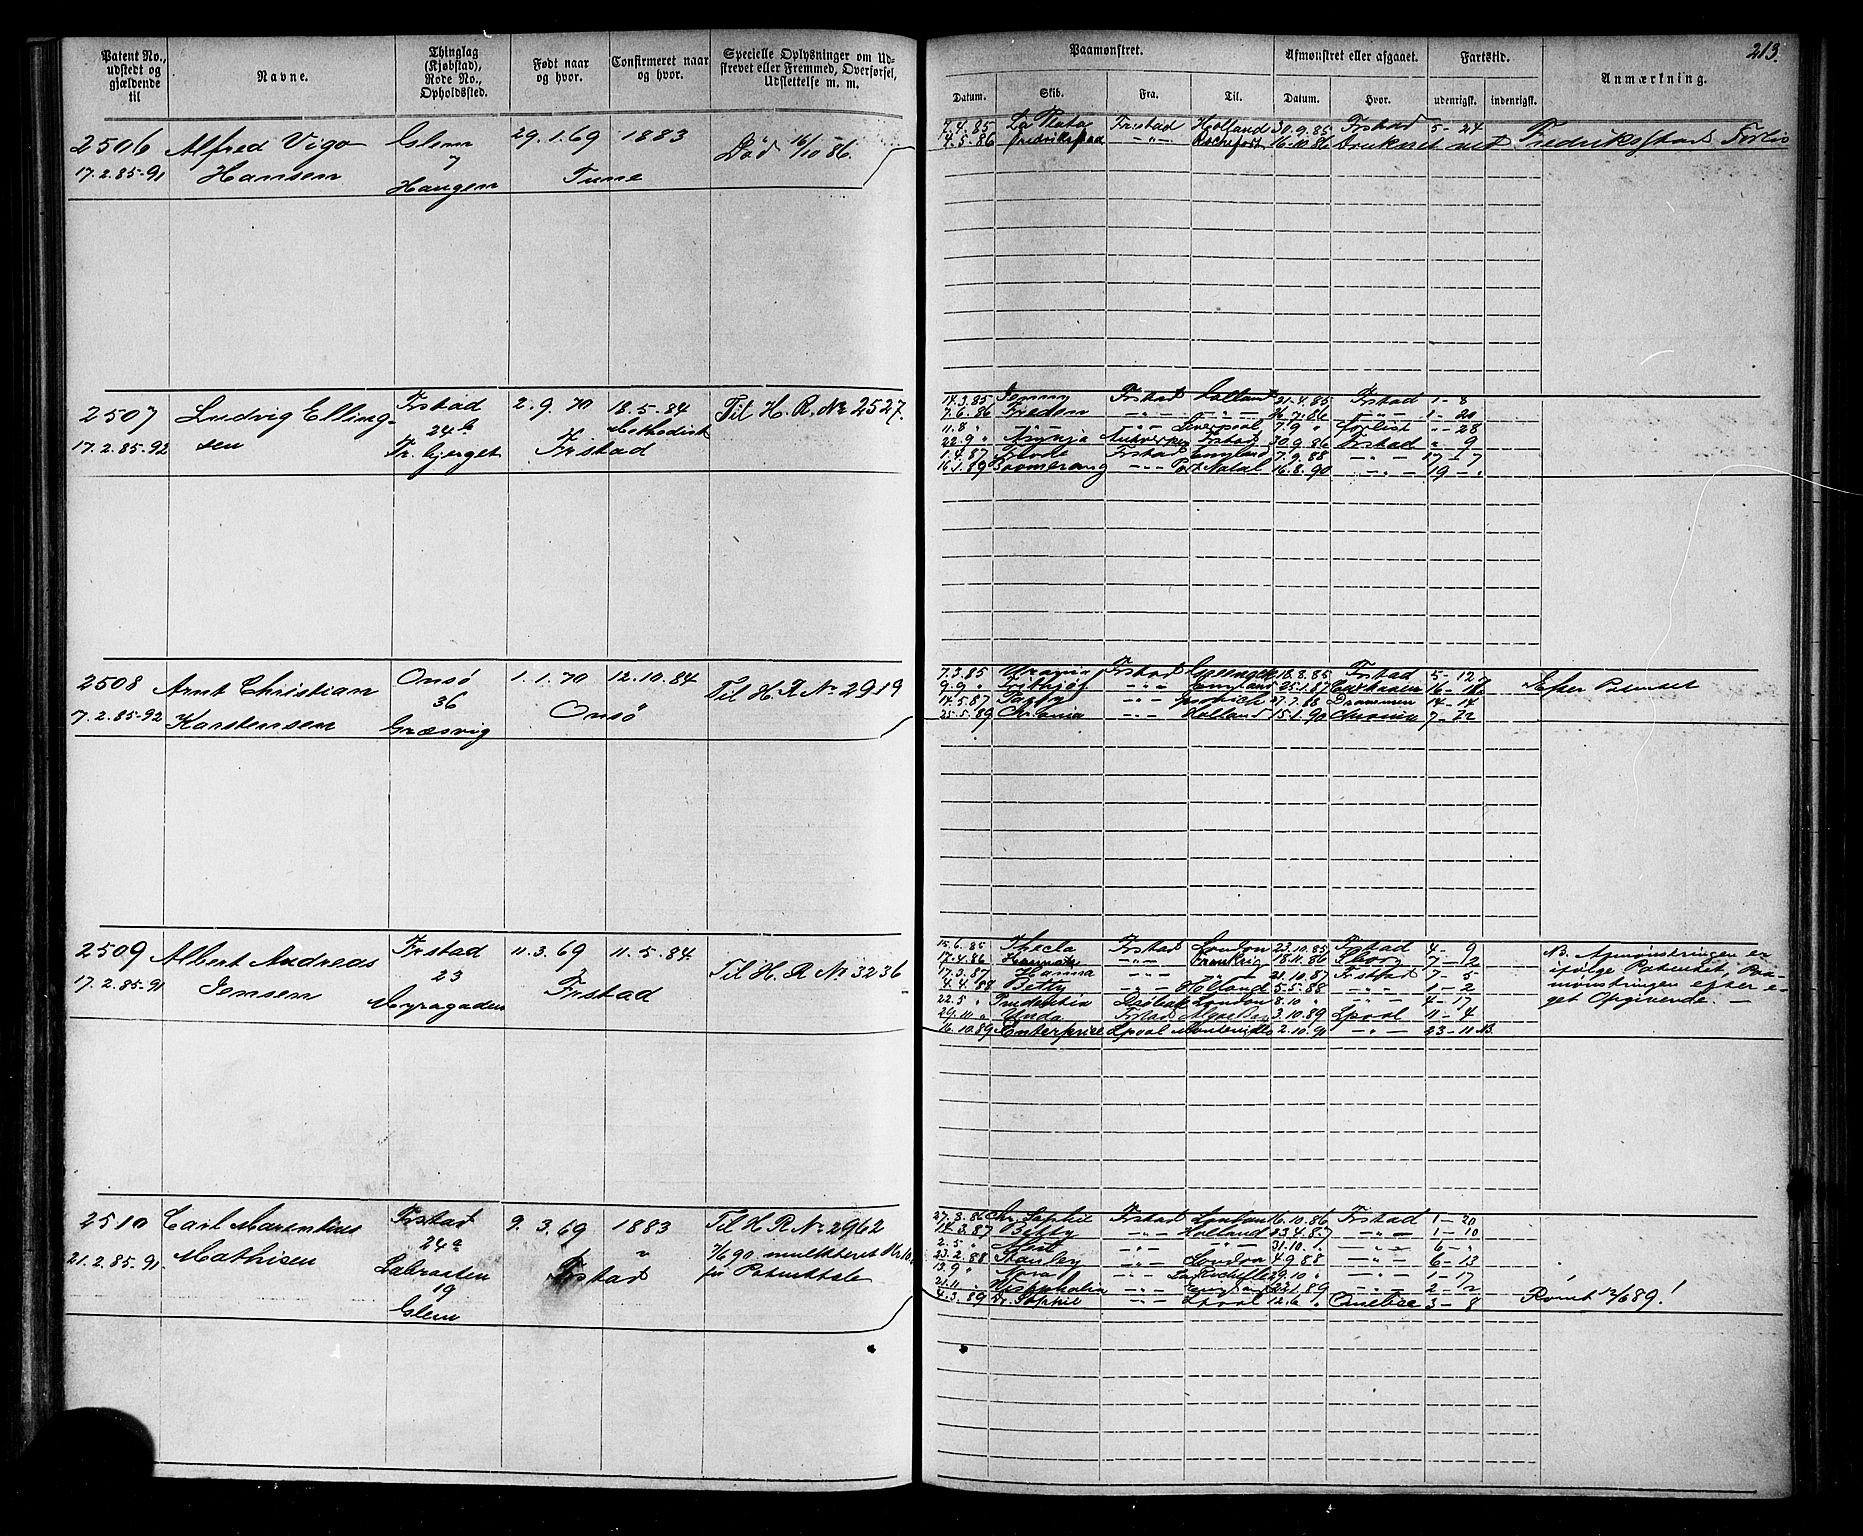 Patent No., udstedt og gjældende til
Navne.
Thinglag (Kjøbstad), Rode No., Opholdssted.
Født naar og hvor.
Confirmeret naar og hvor.
Specielle Oplysninger om Udskrevet eller Fremmed, Overførsel, Udslettelse m. m.
Paamønstret.
Afmønstret eller afgaaet.
Fartstid.
Anmærkning.
213.
Datum.
Skib.
Fra.
Til.
Datum.
Hvor.
udenrigsk.
indenrigsk.
2506 Alfred Vigo Glem 29.1.69 1883 Død 16/10 86.
17.2.85-91 Hansen 7 Tune
Haugen
7.4.85 La Plata Frstad Holland 30.9.85 Frstad 5-24
7.5.86 Rochefort 16.10.86 druknet ved Fredrikstads Forlis
2507 Ludvig Elling- Frstad 2.9.70 18.5.84 Til H. R. No 2527.
17.2.85-92 sen 24b Frstad Methodist
Fr. bjerget
14.3.85 Jenny Frstad Holland 21.4.85 Frstad 1-8
7.6.86 -"- -"- 26.7.86 -"- 1-20
11.8 " -"- -"- Liverpool 7.9 " forlist "-28
22.9 " Antverpen Frstad 30.9.86 Frstad "-9
1.4.87 Frstad England 7.9.88 -"- 17-7
16.1.89 Boomerang -"- Port Natal 16.8.90 -"- 19-"
2508 Arnt Christian Onsø 1.1.70 12.10.84 Til H. R. No 2919
17.2.85-92 Karstensen 36 Onsø
Græsvig
7.3.85 Urania Frstad 18.8.85 Frstad 5-12
9.9 " Frithjof -"- England 25.1.87 Cuxhaven 16-16 Efter Patentet
14.5.87 -"- Ipswich 21.7.88 Drammen 14-14
25.5.89 -"- Holland 15.1.90 7-22
2509 Albert Andreas Frstad 11.3.69 11.5.84 Til H. R. No 3236
17.2.85-91 Jensen 23 Frstad
Myragaden
15.6.85 Thecla Frstad London 23.10.85 Frstad 4-9
17.4.86 -"- Frankrig 18.11.86 7-2
17.3.87 Hanna -"- -"- 21.10.87 Frstad 7-5
4.4.88 Betty -"- Holland 5.5.88 -"- 1-2
22.5 " Prudentia London 8.10 " -"- 4-17
29.11 " Unda Frstad 3.10.89 Lpool 11-4
16.10.89 Enterprise Lpool 2.10.91 -"- 23-11 NB.
NB. Afmønstringen er
ifølge Patentet, Paa-
mønstringen efter e-
get Opgivende.
2510 Carl Marentius Frstad 9.3.69 1883 Til H. R. No 2962
21.2.85-91 Mathisen 24a Frstad " 7/6 90 mulkteret Kr 10
Labraaten for Patenttab
19
Glem
27.3.86 Chr. Sophie Frstad London 16.10.86 Frstad 1-20
14.3.87 Betty -"- Holland 23.4.87 -"- 1-10
2.5 " -"- -"- 31.10 " -"- 6-"
23.2.88 Stanley -"- London 4.9.88 -"- 6-13
13.9 " Nora -"- 29.10 " -"- 1-17
21.11 " Westphalia -"- England 23.1.89 -"- 2-2
4.3.89 Sophie -"- Lpool 12.6 " Quebec 3-8 Rømt 12/6 89!